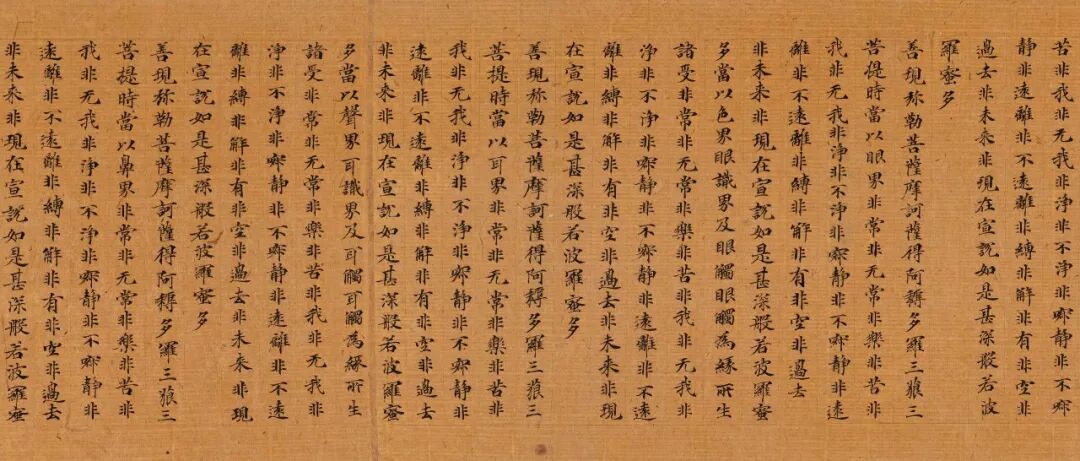 苦非我非无我非浄非不浄非寂静非不寂
静非遠離非不遠離非縛非解非有非空非
過去非未来非現在宣說如是甚深般若波
羅蜜多
善現弥勒菩薩摩訶薩得阿耨多羅三藐三
菩提時當以眼界非常非无常非樂非苦非
我非无我非浄非不浄非寂静非不寂静非遠
離非不遠離非縛非解非有非空非過去
非未来非現在宣說如是甚深般若波羅蜜
多當以色界眼識界及眼觸眼觸為緣所生
諸受非常非无常非樂非苦非我非无我非
浄非不浄非寂静非不寂静非遠離非不遠
離非縛非解非有非空非過去非未来非現
在宣說如是甚深般若波羅蜜多
善現弥勒菩薩摩訶薩得阿耨多羅三藐三
菩提時當以耳界非常非无常非樂非苦非
我非无我非浄非不浄非寂静非不寂静非
遠離非不遠離非縛非解非有非空非過去
非未来非現在宣說如是甚深般若波羅蜜
多當以聲界耳識界及耳觸耳觸為緣所生
諸受非常非无常非樂非苦非我非无我非
浄非不浄非寂静非不寂静非遠離非不遠
離非縛非解非有非空非過去非未来非現
在宣說如是甚深般若波羅蜜多
善現弥勒菩薩摩訶薩得阿耨多羅三藐三
菩提時當以鼻界非常非无常非樂非苦非
我非无我非浄非不浄非寂静非不寂静非
遠離非不遠離非縛非解非有非空非過去
非未来非現在宣說如是甚深般若波羅蜜